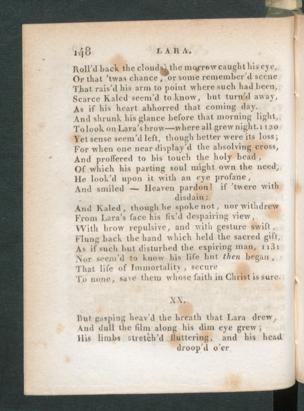 148 LARA.
Roll'd back the clouds, the morrow caught his eye,
Or that 'twas chance, or some remember'd scene
That rais'd his arm to point where such had been,
Scarce Kaled seem'd to know, but turn'd away,
As if his heart abhorred that coming day.
And shrunk his glance before that morning light,
To look on Lara's brow—where all grew night. 1120
Yet sense seem'd left, though better were its loss;
For when one near display'd the absolving cross,
And proffered to his touch the holy bead,
Of which his parting soul might own the need,
He look'd upon it with an eye profane,
And smiled — Heaven pardon! if 'twere with
disdain:
And Kaled, though he spoke not, nor withdrew
From Lara's face his fix'd despairing view,
With brow repulsive, and with gesture swift,
Flung back the hand which held the sacred gift,
As if such but disturbed the expiring man, 1131
Nor seem'd to know his life but then began,
That life of Immortality, secure
To none, save them whose faith in Christ is sure.
XX.
But gasping heav'd the breath that Lara drew,
And dull the film along his dim eye grew;
His limbs stretch'd fluttering, and his head
droop'd o'er